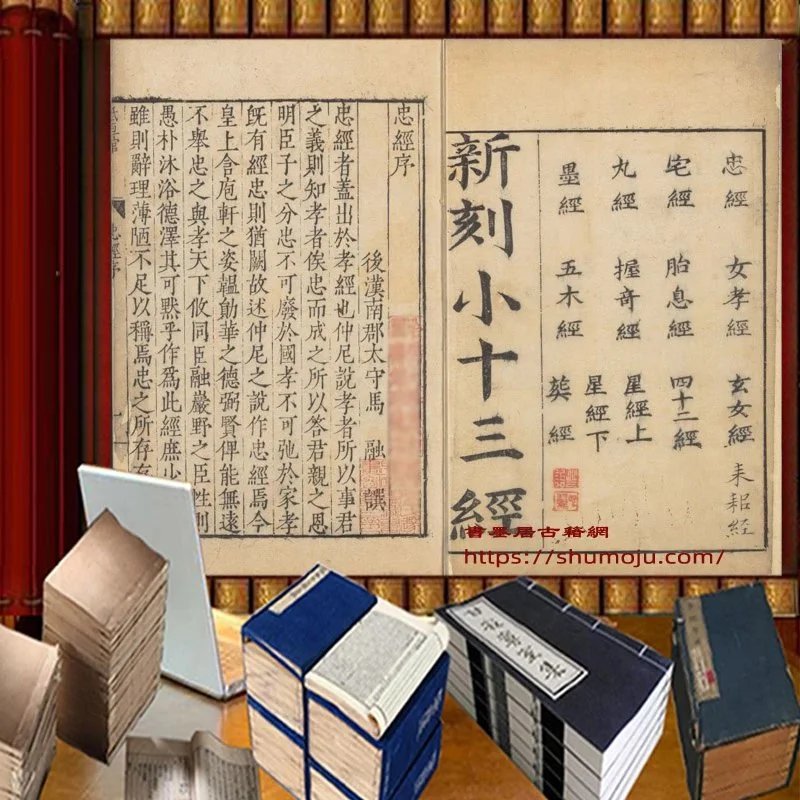 忠經 女孝經 玄女經 耒耜經
宅經 胎息經 四十二經
丸經 握奇經 星經上 星經下
墨經 五木經 葬經
新刻小十三經
忠經序
後漢南郡太守馬 融 譔
忠經者蓋出於孝經也仲尼說孝者所以事君
之義則知孝者俟忠而成之所以答君親之恩
明臣子之分忠不可廢於國孝不可弛於家孝
旣有經忠則猶闕故述仲尼之說作忠經焉今
皇上含庖軒之姿韞勛華之德弼賢俾能無遠
不舉忠之與孝天下攸同臣融巖野之臣性則
愚朴沐浴德澤其可默乎作爲此經庶少
雖則辭理薄陋不足以稱焉忠之所存
忠經序
書墨居古籍網
https://shumoju.com/